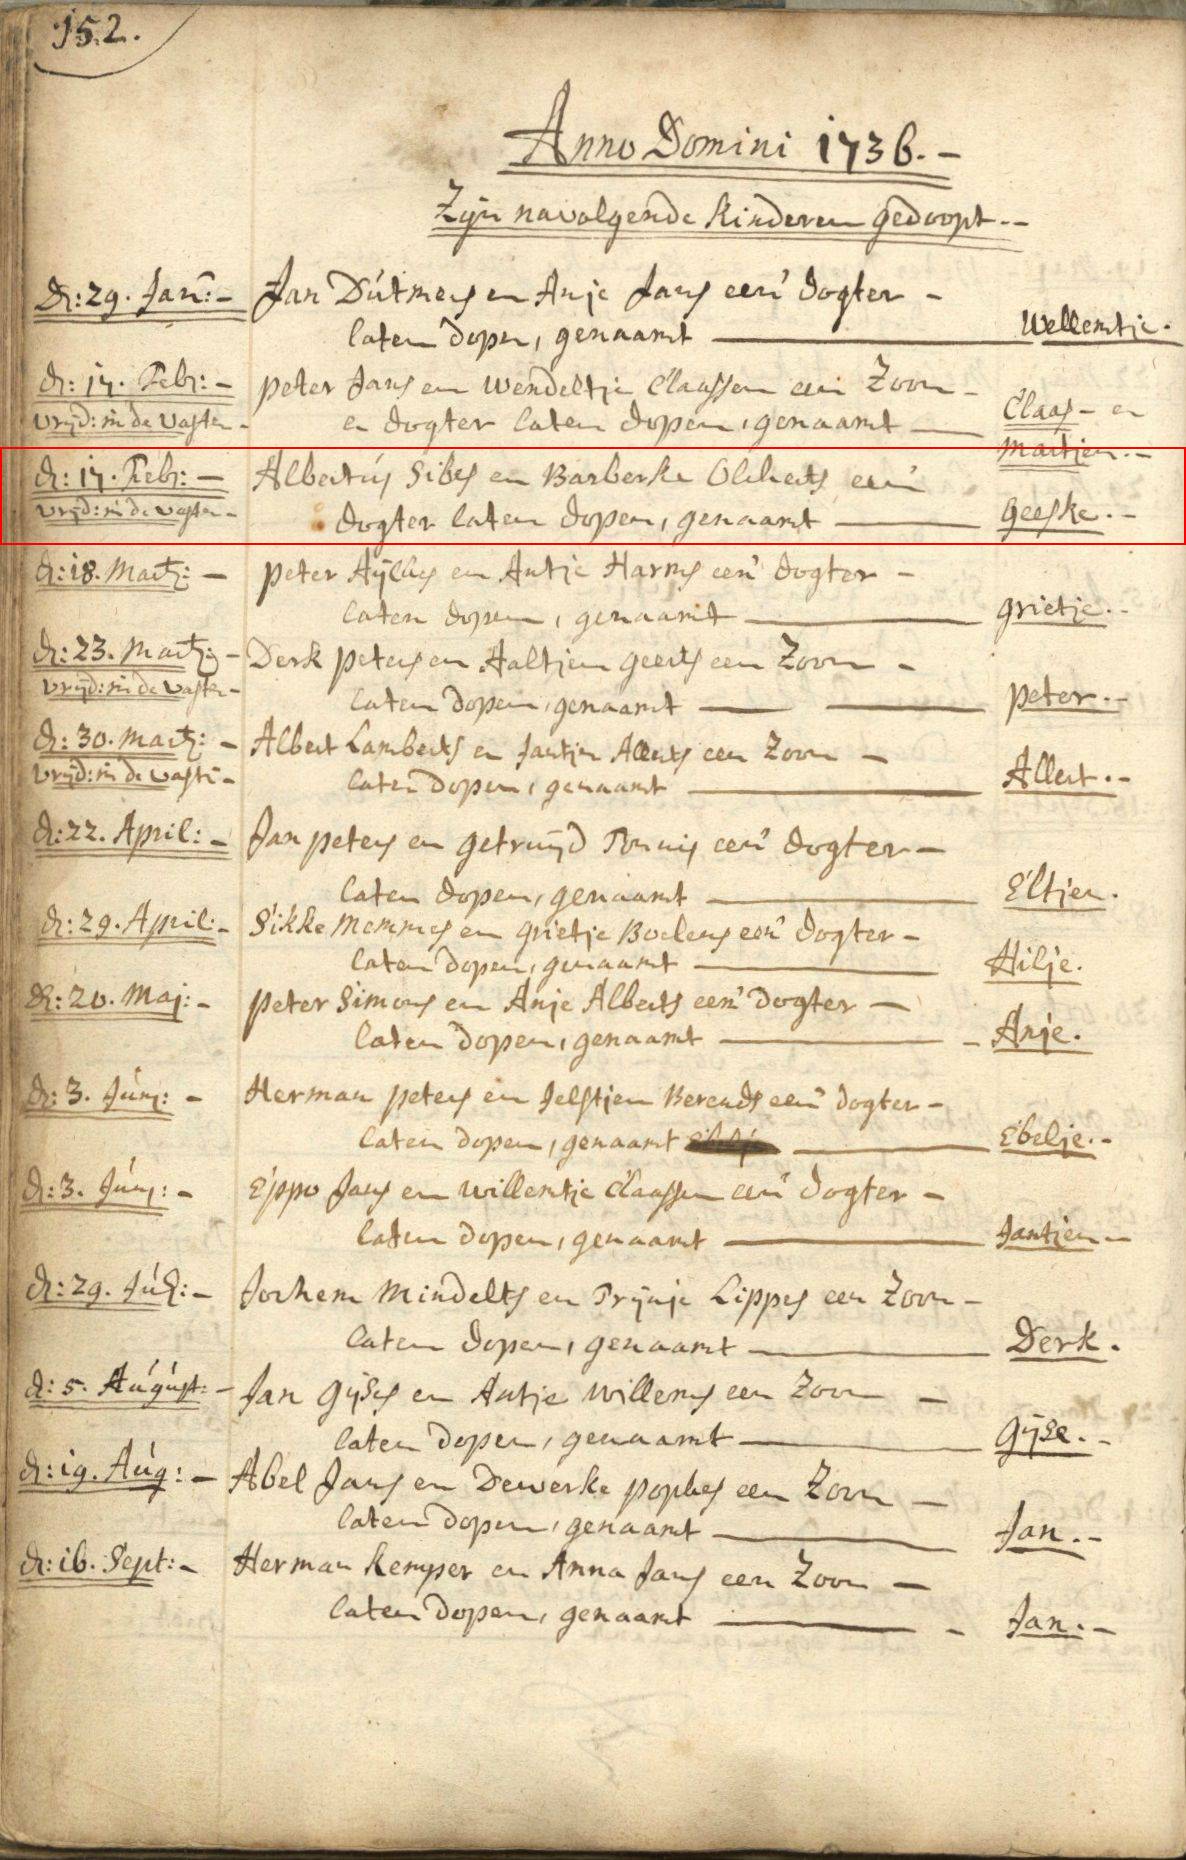 152.
Anno Domini 1736. -
Zijn navolgende kinderen gedoopt. -
d: 29. Jan: - Jan Dútmers en Anje Jans een dogter -
laten dopen, genaamt — Wellemtje.
d: 17. Feb: - peter Jans en Wendeltje Claassen een Zoon -
vrijd: in de vasten - en dogter laten dopen, genaamt — Claas - en
Martjen. -
d: 17. Feb: - Albertús Sibes en Barberke Olcherts een
vrijd: in de vasten - dogter laten dopen, genaamt — Geeske. -
d: 18. Mart: - peter Aijlkes en Antje Harms een dogter -
laten dopen, genaamt — grietje. -
d: 23. Mart: - Derk peters en Aaltjen geerts een Zoon -
vrijd: in de vasten - laten dopen, genaamt — peter. -
d: 30. Mart: - Albert Lamberts en Jantjen Allerts een Zoon -
vrijd: in de vaste - laten dopen, genaamt — Allert. -
d: 22. April: - Jan peters en getruijd Tonnis een dogter -
laten dopen, genaamt — Eltjen.
d: 29. April: - Sikke Memmes en grietje Boelens een dogter -
laten dopen, genaamt — Hilje.
d: 20. Maj: - peter Simons en Anje Alberts een dogter -
laten dopen, genaamt — - Anje.
d: 3. Júnj: - Herman peters en Jelstjen Berends een dogter -
laten dopen, genaamt — Ebelje. -
d: 3. Júnj: - Eppo Jans en willemtje Claassen een dogter -
laten dopen, genaamt — Jantjen -
d: 29. Júl: - Jochem Mindelts en Trijnje Lippes een Zoon -
laten dopen, genaamt — Derk.
d: 5. Aúgúst: - Jan Gijses en Antje willems een Zoon -
laten dopen, genaamt — Gijse. -
d: 19. Aúg: - Abel Jans en Dewerke popkes een Zoon -
laten dopen, genaamt — Jan. -
d: 16. Sept: - Herman kemper en Anna Jans een Zoon -
laten dopen, genaamt — - Jan. -